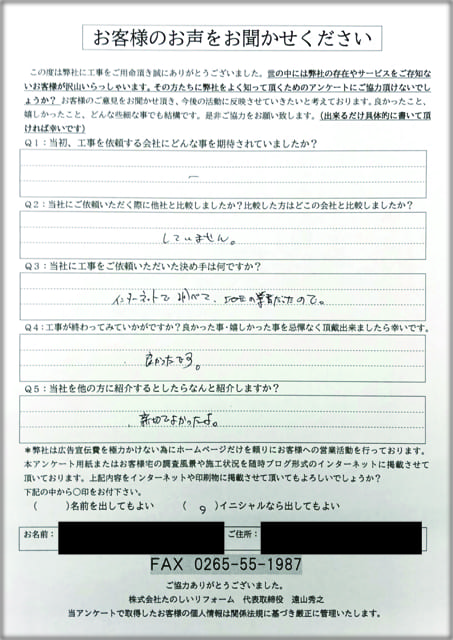 お客様のお声をお聞かせください
この度は弊社に工事をご用命頂き誠にありがとうございました。世の中には弊社の存在やサービスをご存知な
いお客様が沢山いらっしゃいます。その方たちに弊社をよく知って頂くためのアンケートにご協力頂けないでし
ょうか? お客様のご意見をお聞かせ頂き、今後の活動に反映させていきたいと考えております。良かったこと、
嬉しかったこと、どんな些細な事でも結構です。是非ご協力をお願い致します。(出来るだけ具体的に書いて頂
ければ幸いです)
Q1:当初、工事を依頼する会社にどんな事を期待されていましたか?
ー
Q2:当社にご依頼いただく際に他社と比較しましたか?比較した方はどこの会社と比較しましたか?
していません。
Q3:当社に工事をご依頼いただいた決め手は何ですか?
インターネットで調べて、だったので。
Q4:工事が終わってみていかがですか?良かった事・嬉しかった事を忌憚なく頂戴出来ましたら幸いです。
良かったです。
Q5:当社を他の方に紹介するとしたらなんと紹介しますか?
親切でよかったよ。
*弊社は広告宣伝費を極力かけない為にホームページだけを頼りにお客様への営業活動を行っております。
本アンケート用紙またはお客様宅の調査風景や施工状況を随時ブログ形式のインターネットに掲載させて
頂いております。上記内容をインターネットや印刷物に掲載させて頂いてもよろしいでしょうか?
下記の中から○印をお付下さい。
( )名前を出してもよい ( ○ )イニシャルなら出してもよい
お名前: ご住所:
FAX 0265-55-1987
ご協力ありがとうございました。
株式会社たのしいリフォーム 代表取締役 遠山秀之
当アンケートで取得したお客様の個人情報は関係法規に基づき厳正に管理いたします。